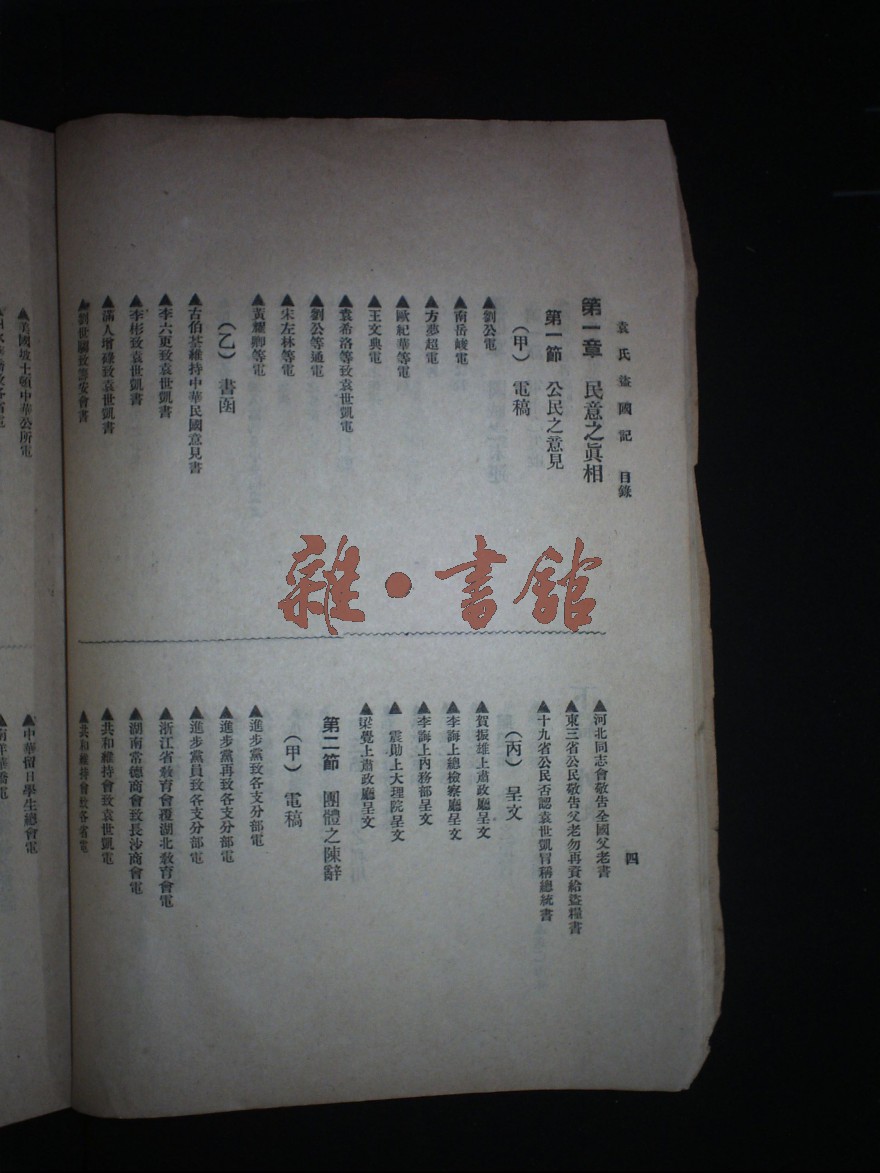 袁氏盜國記　目錄
四
第一章　民意之眞相
第一節　公民之意見
（甲）電稿
▲劉公電
▲南岳峻電
▲方夢超電
▲歐紀華等電
▲王文典電
▲袁希洛等致袁世凱電
▲劉公等通電
▲宋左林等電
▲黃耀卿等電
（乙）書函
▲古伯荃維持中華民國意見書
▲李六更致袁世凱書
▲李彬致袁世凱書
▲滿人增綫致袁世凱書
▲劉世驤致籌安會書
▲河北同志會敬告全國父老書
▲東三省公民敬告父老勿再賫給盜糧書
▲十九省公民否認袁世凱冒稱總統書
（丙）呈文
▲賀振雄上肅政廳呈文
▲李誨上總檢察廳呈文
▲李誨上內務部呈文
▲　震勛上大理院呈文
▲梁覺上肅政廳呈文
第二節　團體之陳辭
（甲）電稿
▲進步黨致各支分部電
▲進步黨再致各支分部電
▲進步黨員致各支分部電
▲浙江省敎育會覆湖北敎育會電
▲湖南常德商會致長沙商會電
▲共和維持會致袁世凱電
▲共和維持會致各省電
▲美國坡士頓中華公所電
▲中華留日學生總會電
雜·書館